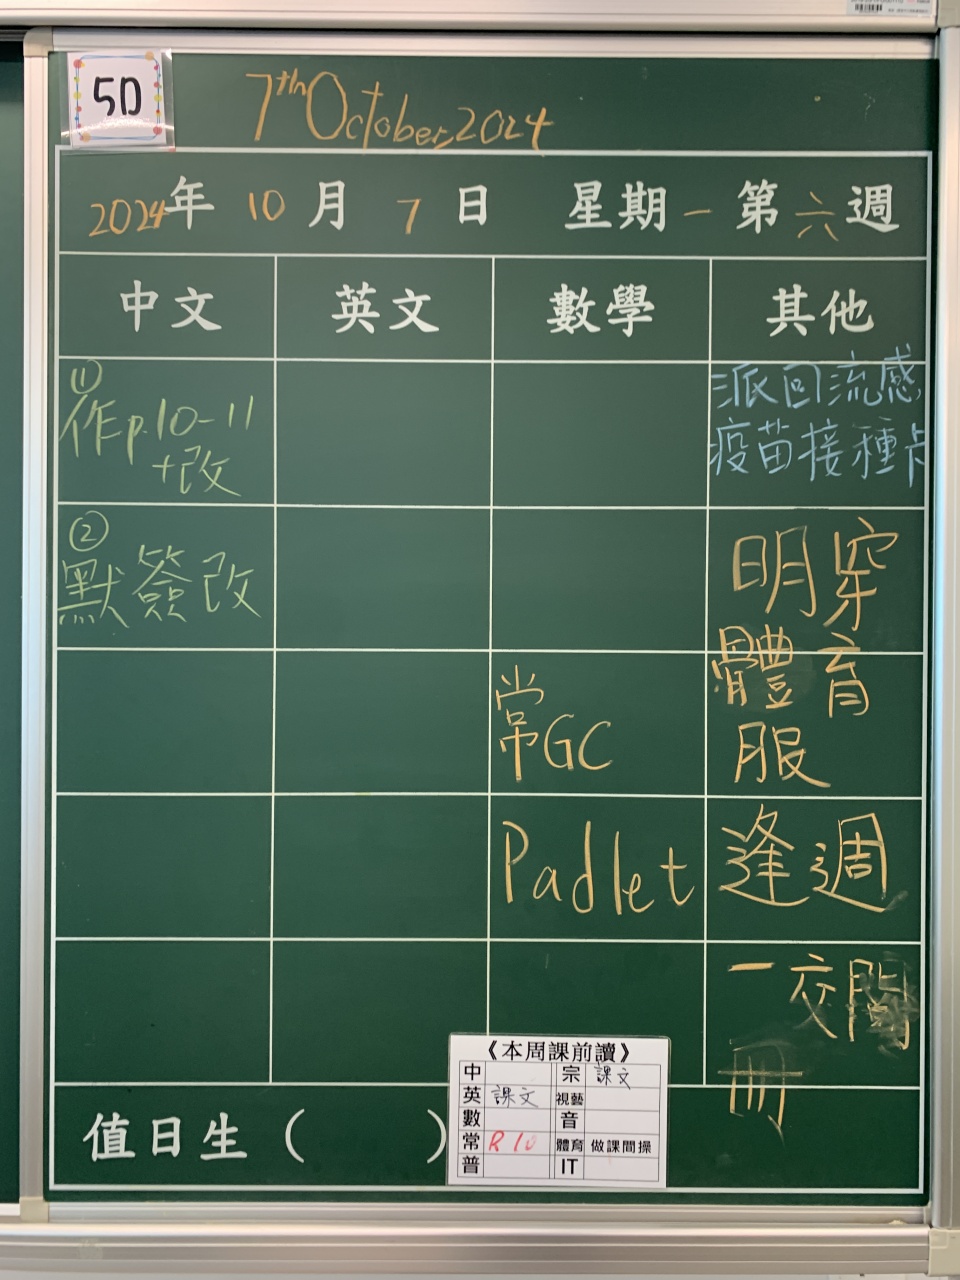 5D
7th October, 2024
2024年 10月 7日 星期一 第六週
中文 英文 數學 其他
①
作p.10-11
+改
派回流感
疫苗接種卡
②
默簽改
明穿
體育
服
常GC
Padlet
逢週
一交閱
冊
值日生( )
《本周課前讀》
中 宗 課文
英 課文 視藝
數 音
常 R 10 體育 做課間操
普 IT